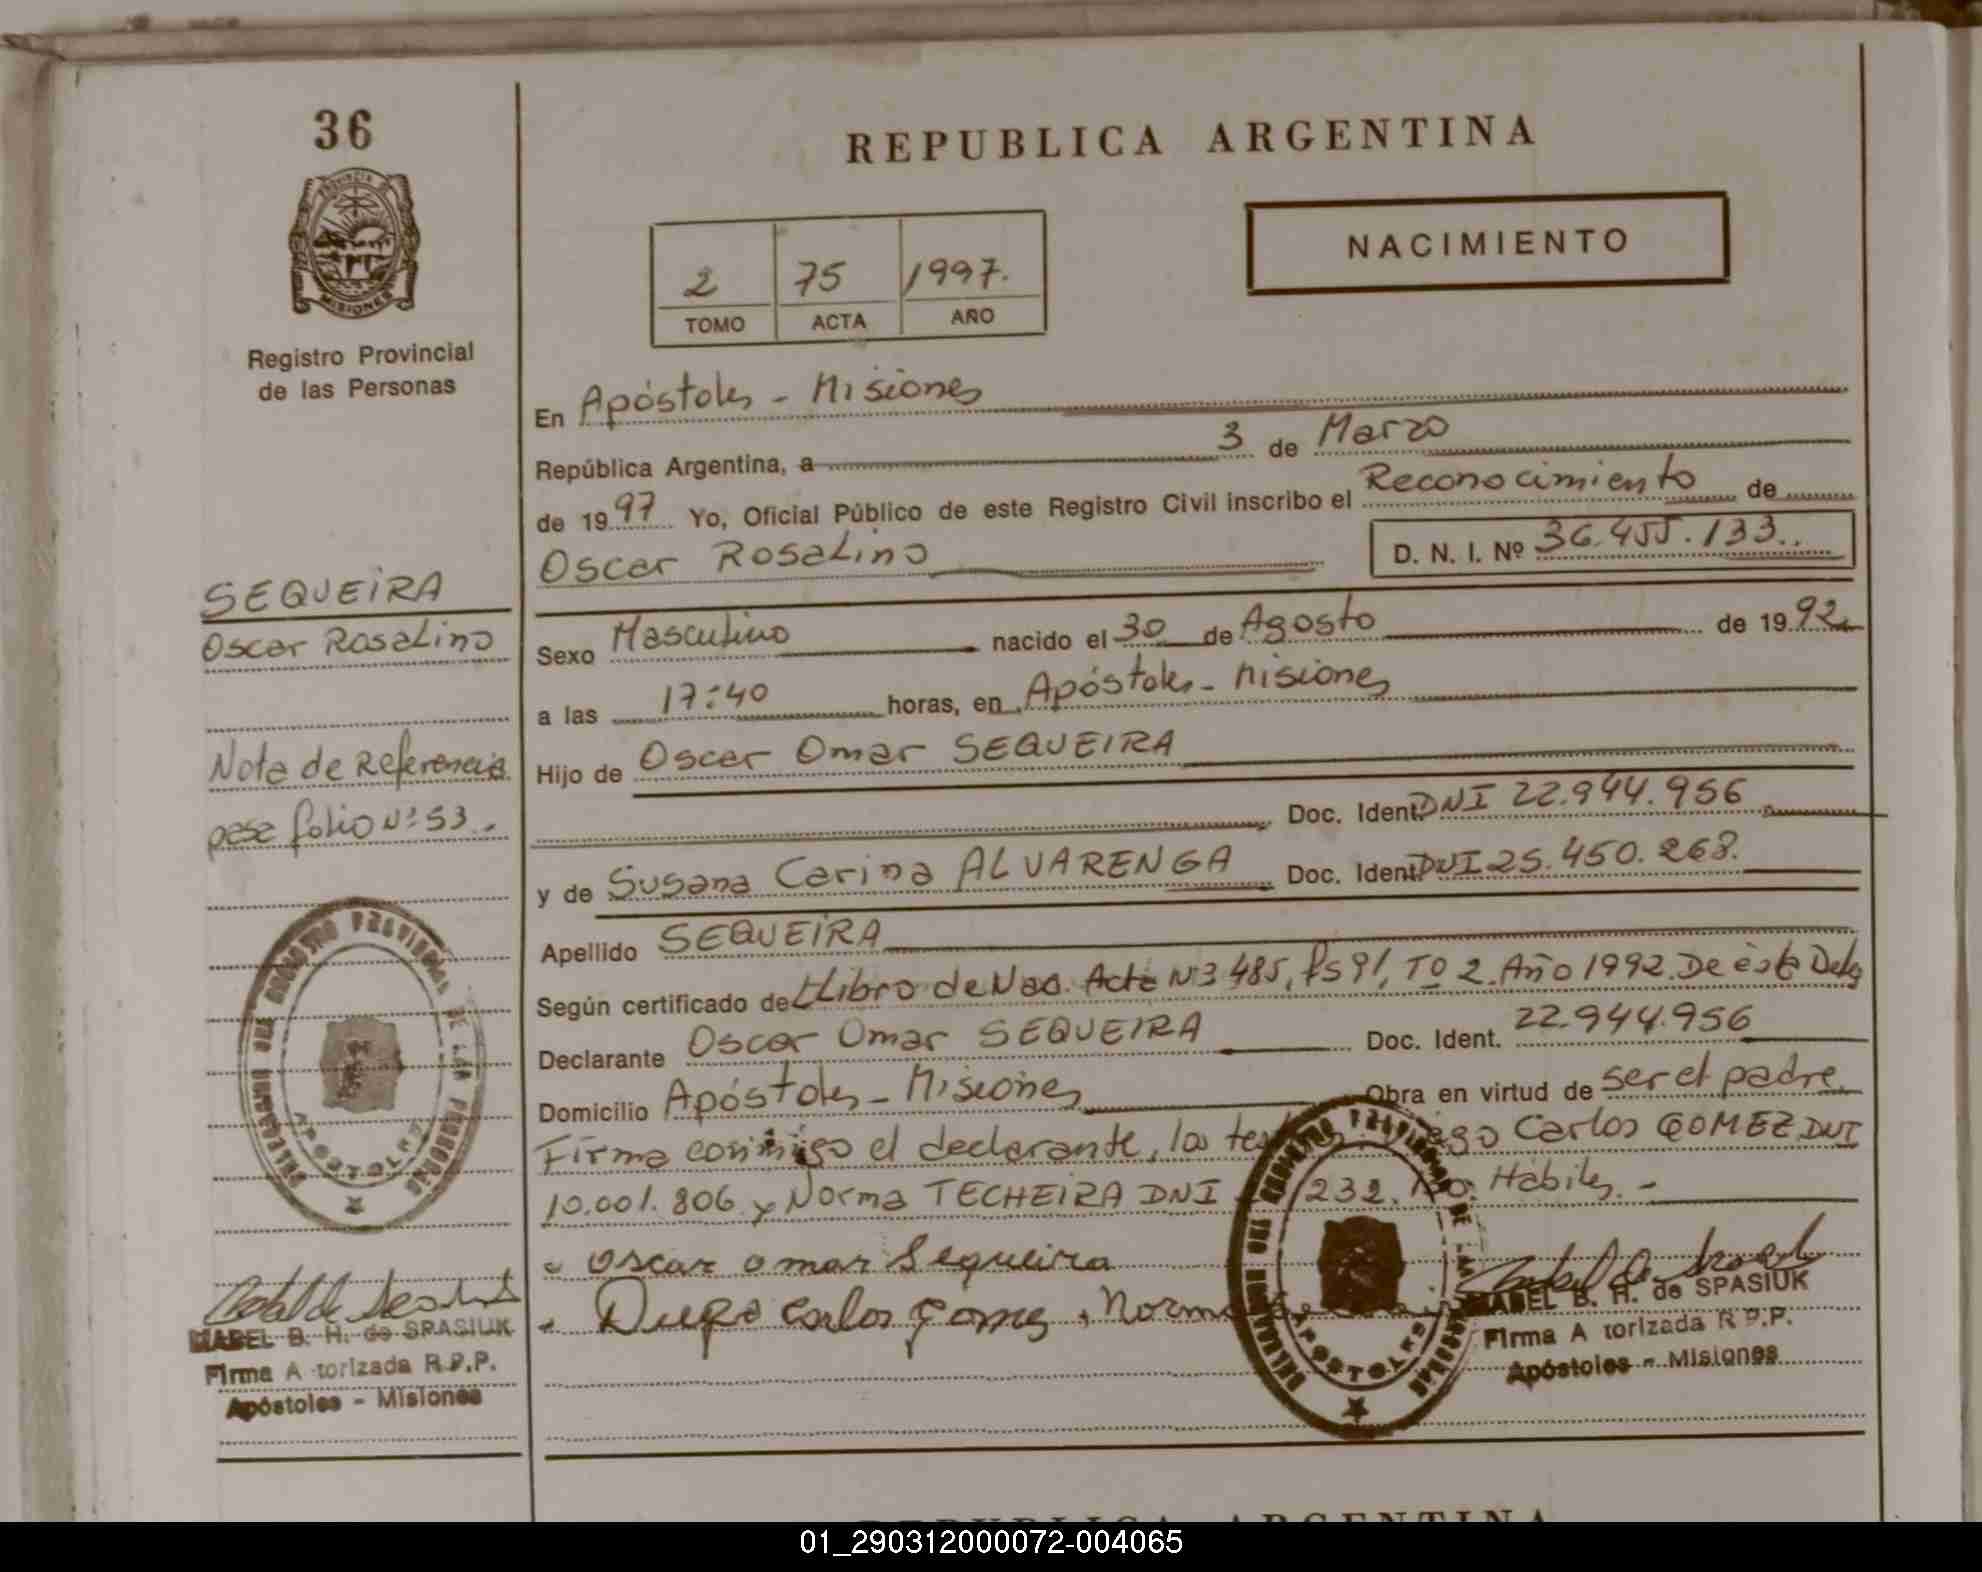 36
REPUBLICA ARGENTINA
NACIMIENTO
2 75 1997.
TOMO ACTA AÑO
PROVINCIA DE
MISIONES
Registro Provincial
de las Personas
En Apóstoles - Misiones
República Argentina, a 3 de Marzo
de 1997 Yo, Oficial Público de este Registro Civil inscribo el Reconocimiento de
Oscar Rosalino D. N. I. Nº 36.455.133..
SEQUEIRA
Oscar Rosalino
Sexo Masculino nacido el 30 de Agosto de 1992
a las 17:40 horas, en Apóstoles - Misiones
Nota de Referencia
pase folio Nº 53.-
Hijo de Oscar Omar SEQUEIRA
Doc. Ident. DNI 22.944.956
y de Susana Carina ALVARENGA Doc. Ident. DNI 25.450.268.
Apellido SEQUEIRA
Según certificado de Libro de Nac. Acta Nº 485, Fs 91, Tº 2. Año 1992. De ésta Deleg
Declarante Oscar Omar SEQUEIRA Doc. Ident. 22.944.956
Domicilio Apóstoles - Misiones Obra en virtud de ser el padre.
Firma conmigo el declarante, los Carlos GOMEZ DNI
10.001.806 y Norma TECHEIRA DNI 232. Hábiles. -
- Oscar omar Sequeira
- Diego Carlos Gomez, Norma
REGISTRO PROVINCIAL DE LAS PERSONAS
APOSTOLES
REGISTRO PROVINCIAL DE LAS PERSONAS
APOSTOLES
MABEL B. H. de SPASIUK
Firma A torizada R.P.P.
Apóstoles - Misiones
MABEL B. H. de SPASIUK
Firma A torizada R.P.P.
Apóstoles - Misiones
REPUBLICA ARGENTINA
01_290312000072-004065